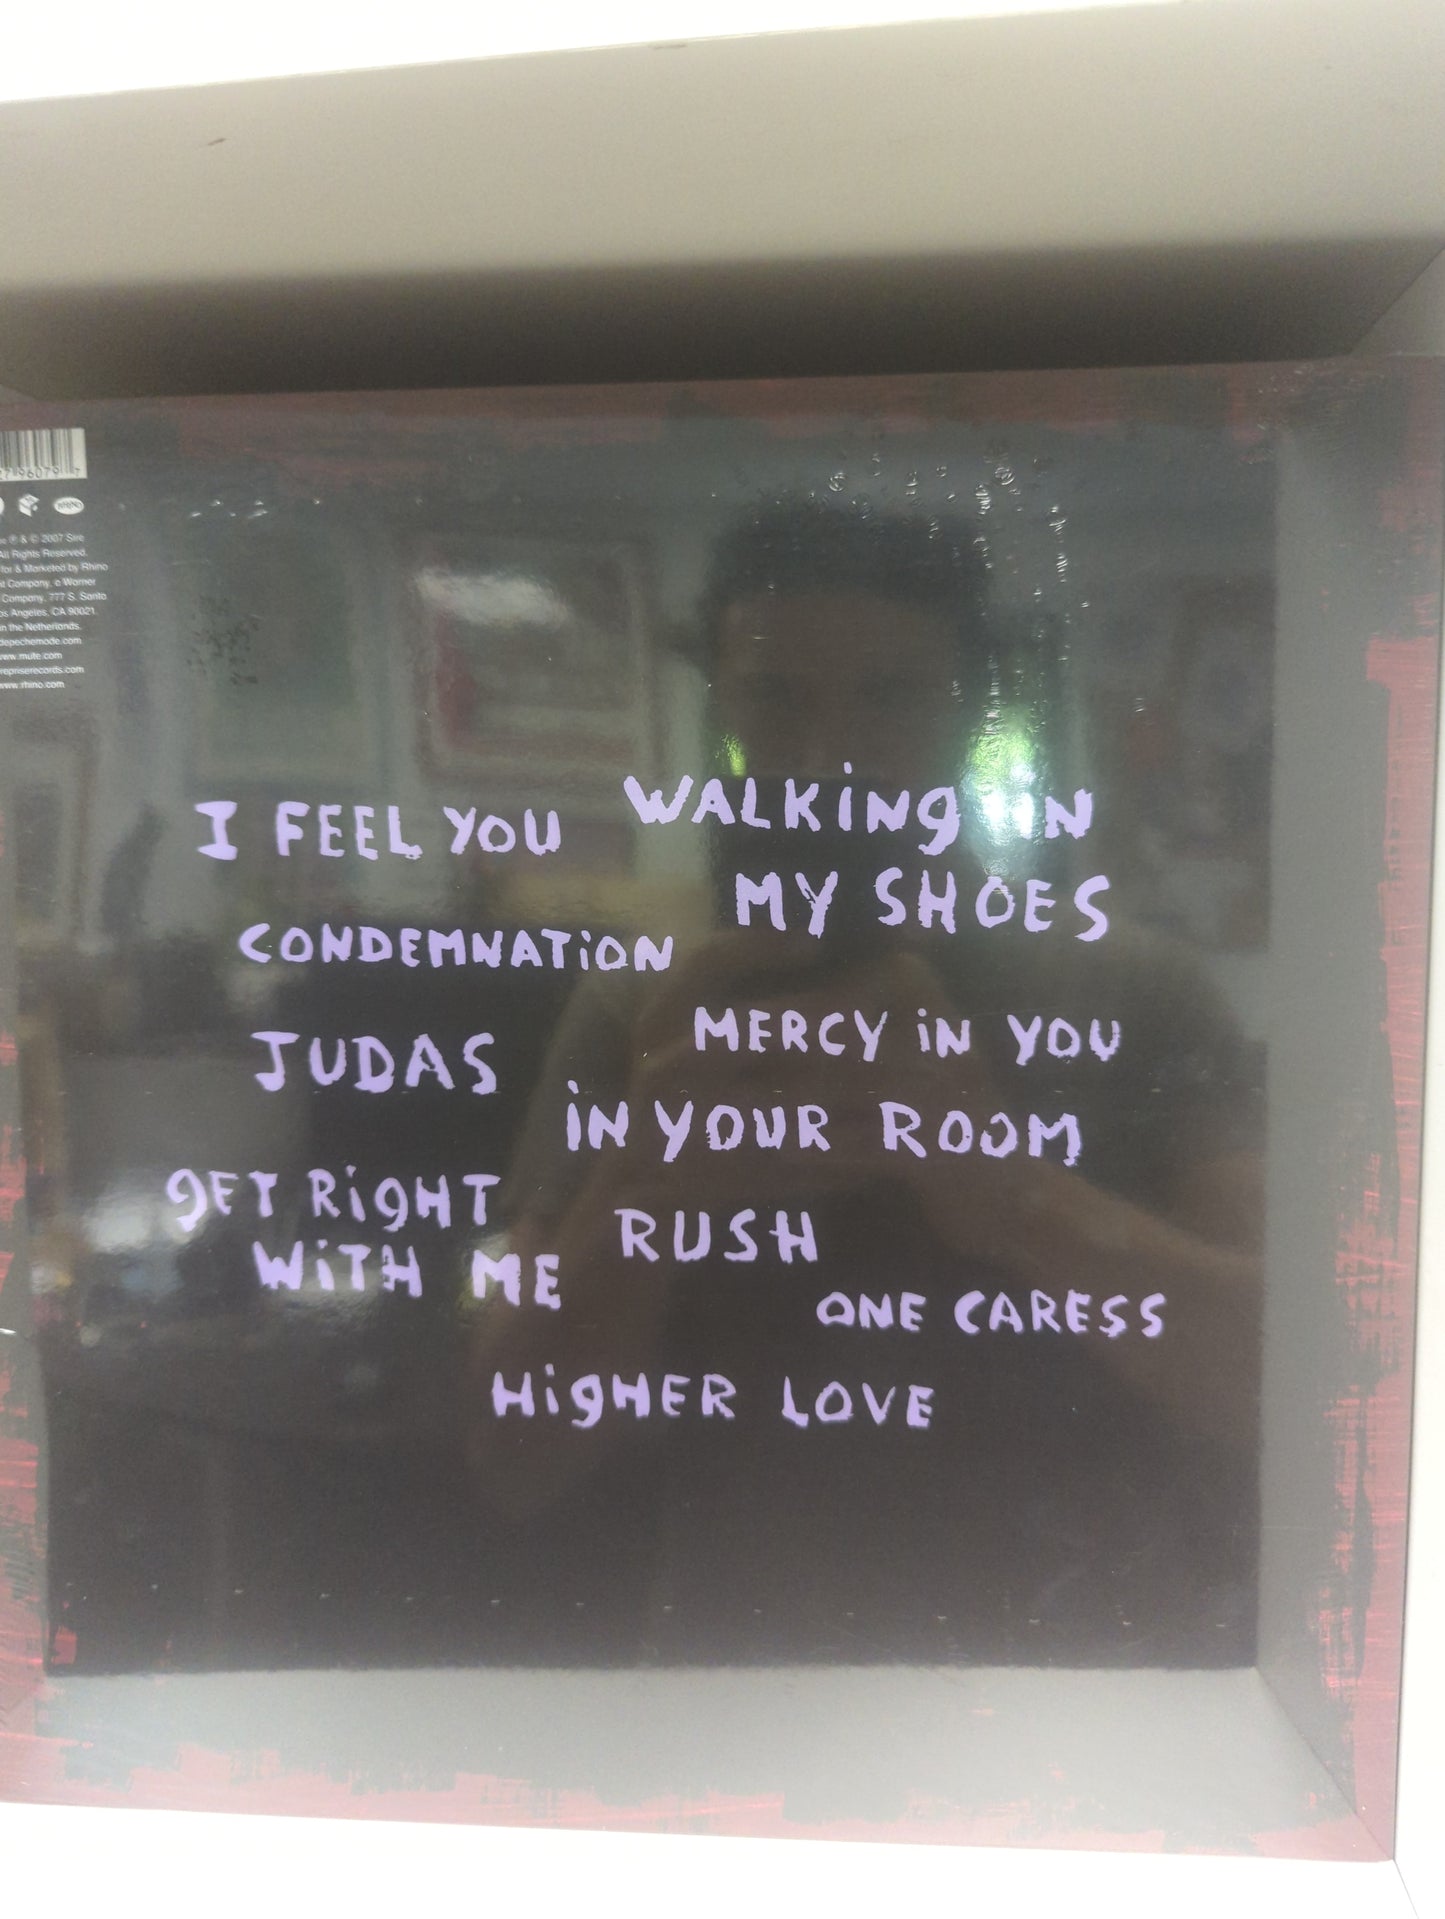 27 96079 7
RHINO
e ℗ & © 2007 Sire
All Rights Reserved.
for & Marketed by Rhino
Company, a Warner
Company, 777 S. Santa
os Angeles, CA 90021.
in the Netherlands.
depechemode.com
www.mute.com
repriserecords.com
www.rhino.com
I FEEL YOU
WALKiNg iN
MY SHOES
CONDEMNATiON
JUDAS
MERCY iN YOU
iN YOUR ROOM
gET RigHT
WiTH ME
RUSH
ONE CARESS
HigHER LOVE